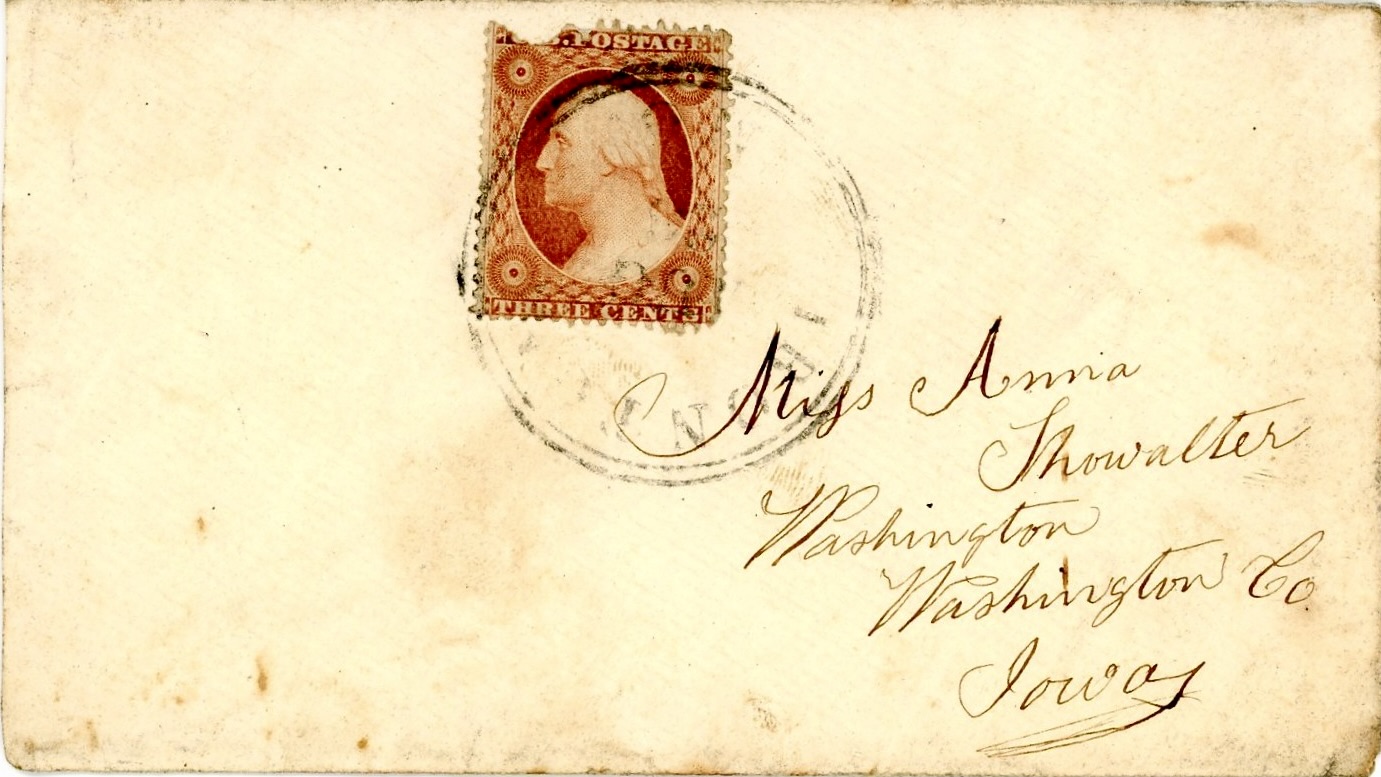 U.S. POSTAGE
THREE CENTS
Miss Anna
Showalter
Washington
Washington Co
Iowa